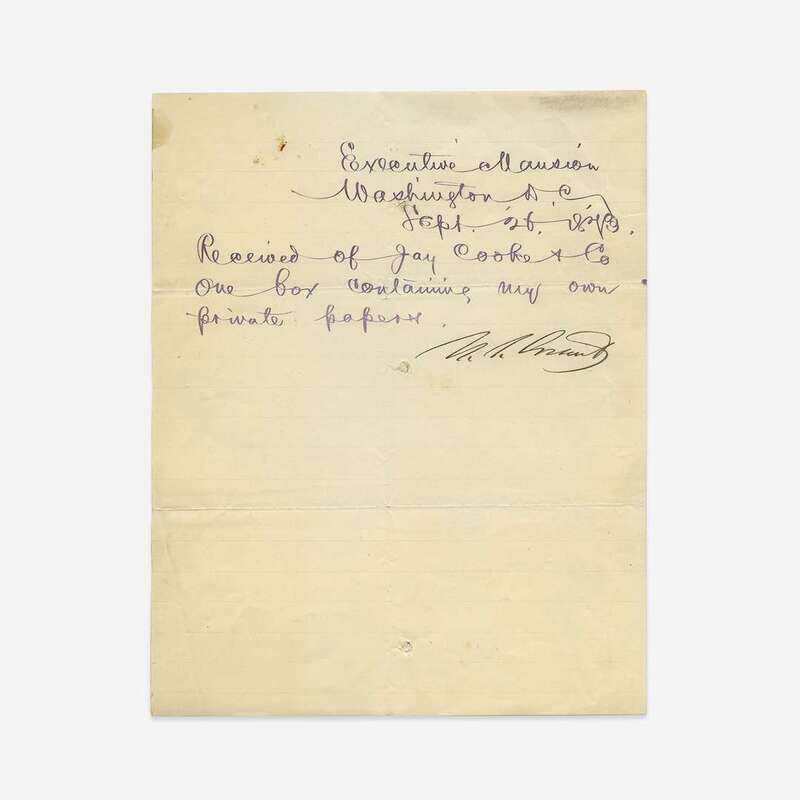 Executive Mansion
Washington D.C.
Sept. 26. 1873.
Received of Jay Cooke & Co
one box containing my own
private papers.
U. S. Grant